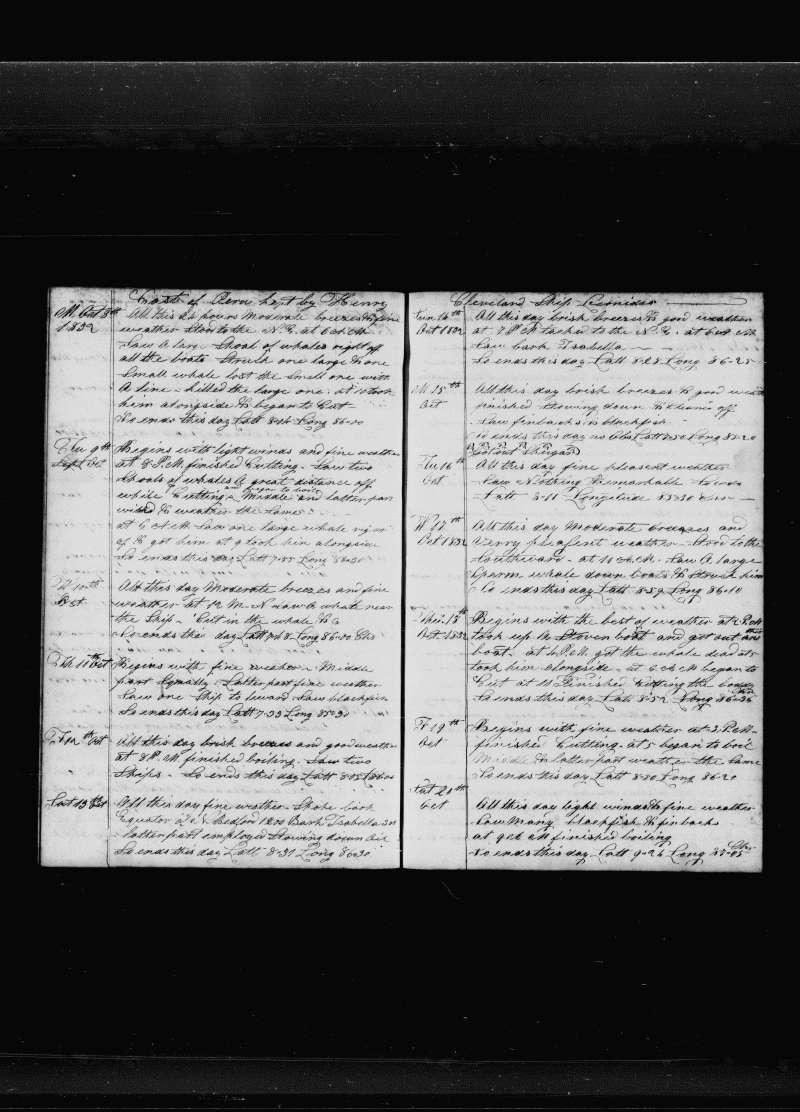 Coast of Peru kept by Henry
M Oct 8th 1832
All this 24 hours Moderate breezes & fine
weather Stood to the N. E. at 6 A M
Saw A large Shoal of whales right off
all the boats Struck one large & one
Small whale lost the Small one with
A line - killed the large one. at 10 took
him alongside & began to Cut
So ends this day Latt 8-04 Long 86-00
Tu 9th Oct
Begins with light winds and fine weather
at 8 P.M. finished Cutting. Saw two
Shoals of whales A great distance off
while Cutting and began to boil Middle and latter part
wind & weather the same
at 6 A.M. Saw one large whale right
of & got him at 9 took him alongside
So ends this day Latt 7-55 Long 86-20
W 10th Oct
All this day Moderate breezes and fine
weather at 12 M. N saw A whale near
the Ship - Cut in the whale
So ends this day Latt 7-48 Long 86-00
Th 11th Oct
Begins with fine weather Middle
part Squally - Latter part fine weather
Saw one Ship to leward Saw blackfish
So ends this day Latt 7-33 Long 85-30
F 12th Oct
All this day brisk breezes and good weather
at 8 P. M finished boiling. Saw two
Ships - So ends this day Latt 8-05
Sat 13th Oct
All this day fine weather. Spoke bark
Equator of N Bedford 1200 Bark Isabella
latter part employed Stowing down Oil
So ends this day Latt 8-31 Long 86-30
Cleveland Ship
Sun 14th Oct 1832
All this day brisk breezes & good weather
at 7 P M tacked to the N. E. at 6 A M
Saw bark Isabella
So ends this day Latt 8-28 Long 86-25
M 15th Oct
All this day brisk breezes & good weather
finished Stowing down & cleaned off
Saw finbacks & blackfish
So ends this day no Obs Latt 8-30 Long 85-20
Tu 16th Oct
All this day fine pleasent weather
Saw Nothing Remarkable So ends
Latt 8-11 Longitude 85-30
W 17th Oct 1832
All this day Moderate breezes and
Verry pleasent weather - Stood to the
Southward - at 11 A.M. Saw A large
Sperm whale down boats & Struck him
So ends this day Latt 8-59 Long 86-10
Thu. 18th Oct 1832
Begins with the best of weather at 2 P.M
took up A Stoven boat and got out another
boat. at 4 P.M. got the whale dead at 5
took him alongside - at 6 A M began to
Cut at 11 Finished Cutting the body
So ends this day Latt 8-52 Long 86-36
F 19th Oct
Begins with fine weather at 3 P.M.
finished Cutting. at 5 began to boil
Middle & latter part weather the same
So ends this day Latt 8-50 Long 86-20
Sat 20th Oct
All this day light winds & fine weather
Saw Many blackfish & finbacks
at 9 A M finished boiling
So ends this day Latt 9-26 Long 85-05